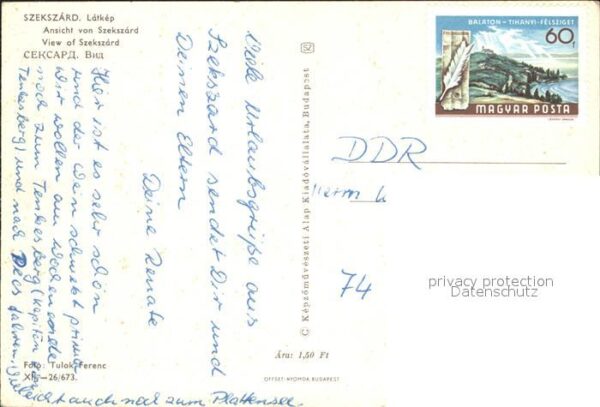 SZEKSZÁRD. Látkép
Ansicht von Szekszárd
View of Szekszárd
СЕКСАРД. Вид
BALATON – TIHANYI-FÉLSZIGET
60f
MAGYAR POSTA
Viele Urlaubsgrüße aus
Szekszard sendet Dir und
Deinen Eltern
Deine Renate
Hier ist es sehr schön
und der Wein schmeckt prima.
Wir wollen am Wochenende
nach zum Tenkesberg (Kapitän
Tenkesberg) und nach Pecs fahren,
Vielleicht auch nach zum Plattensee
DDR
Herrn
74
privacy protection
Datenschutz
C Képzőművészeti Alap Kiadóvállalata, Budapest
Ára: 1,50 Ft
OFFSET-NYOMDA BUDAPEST
Foto: Tulok Ferenc
XP—26/673.